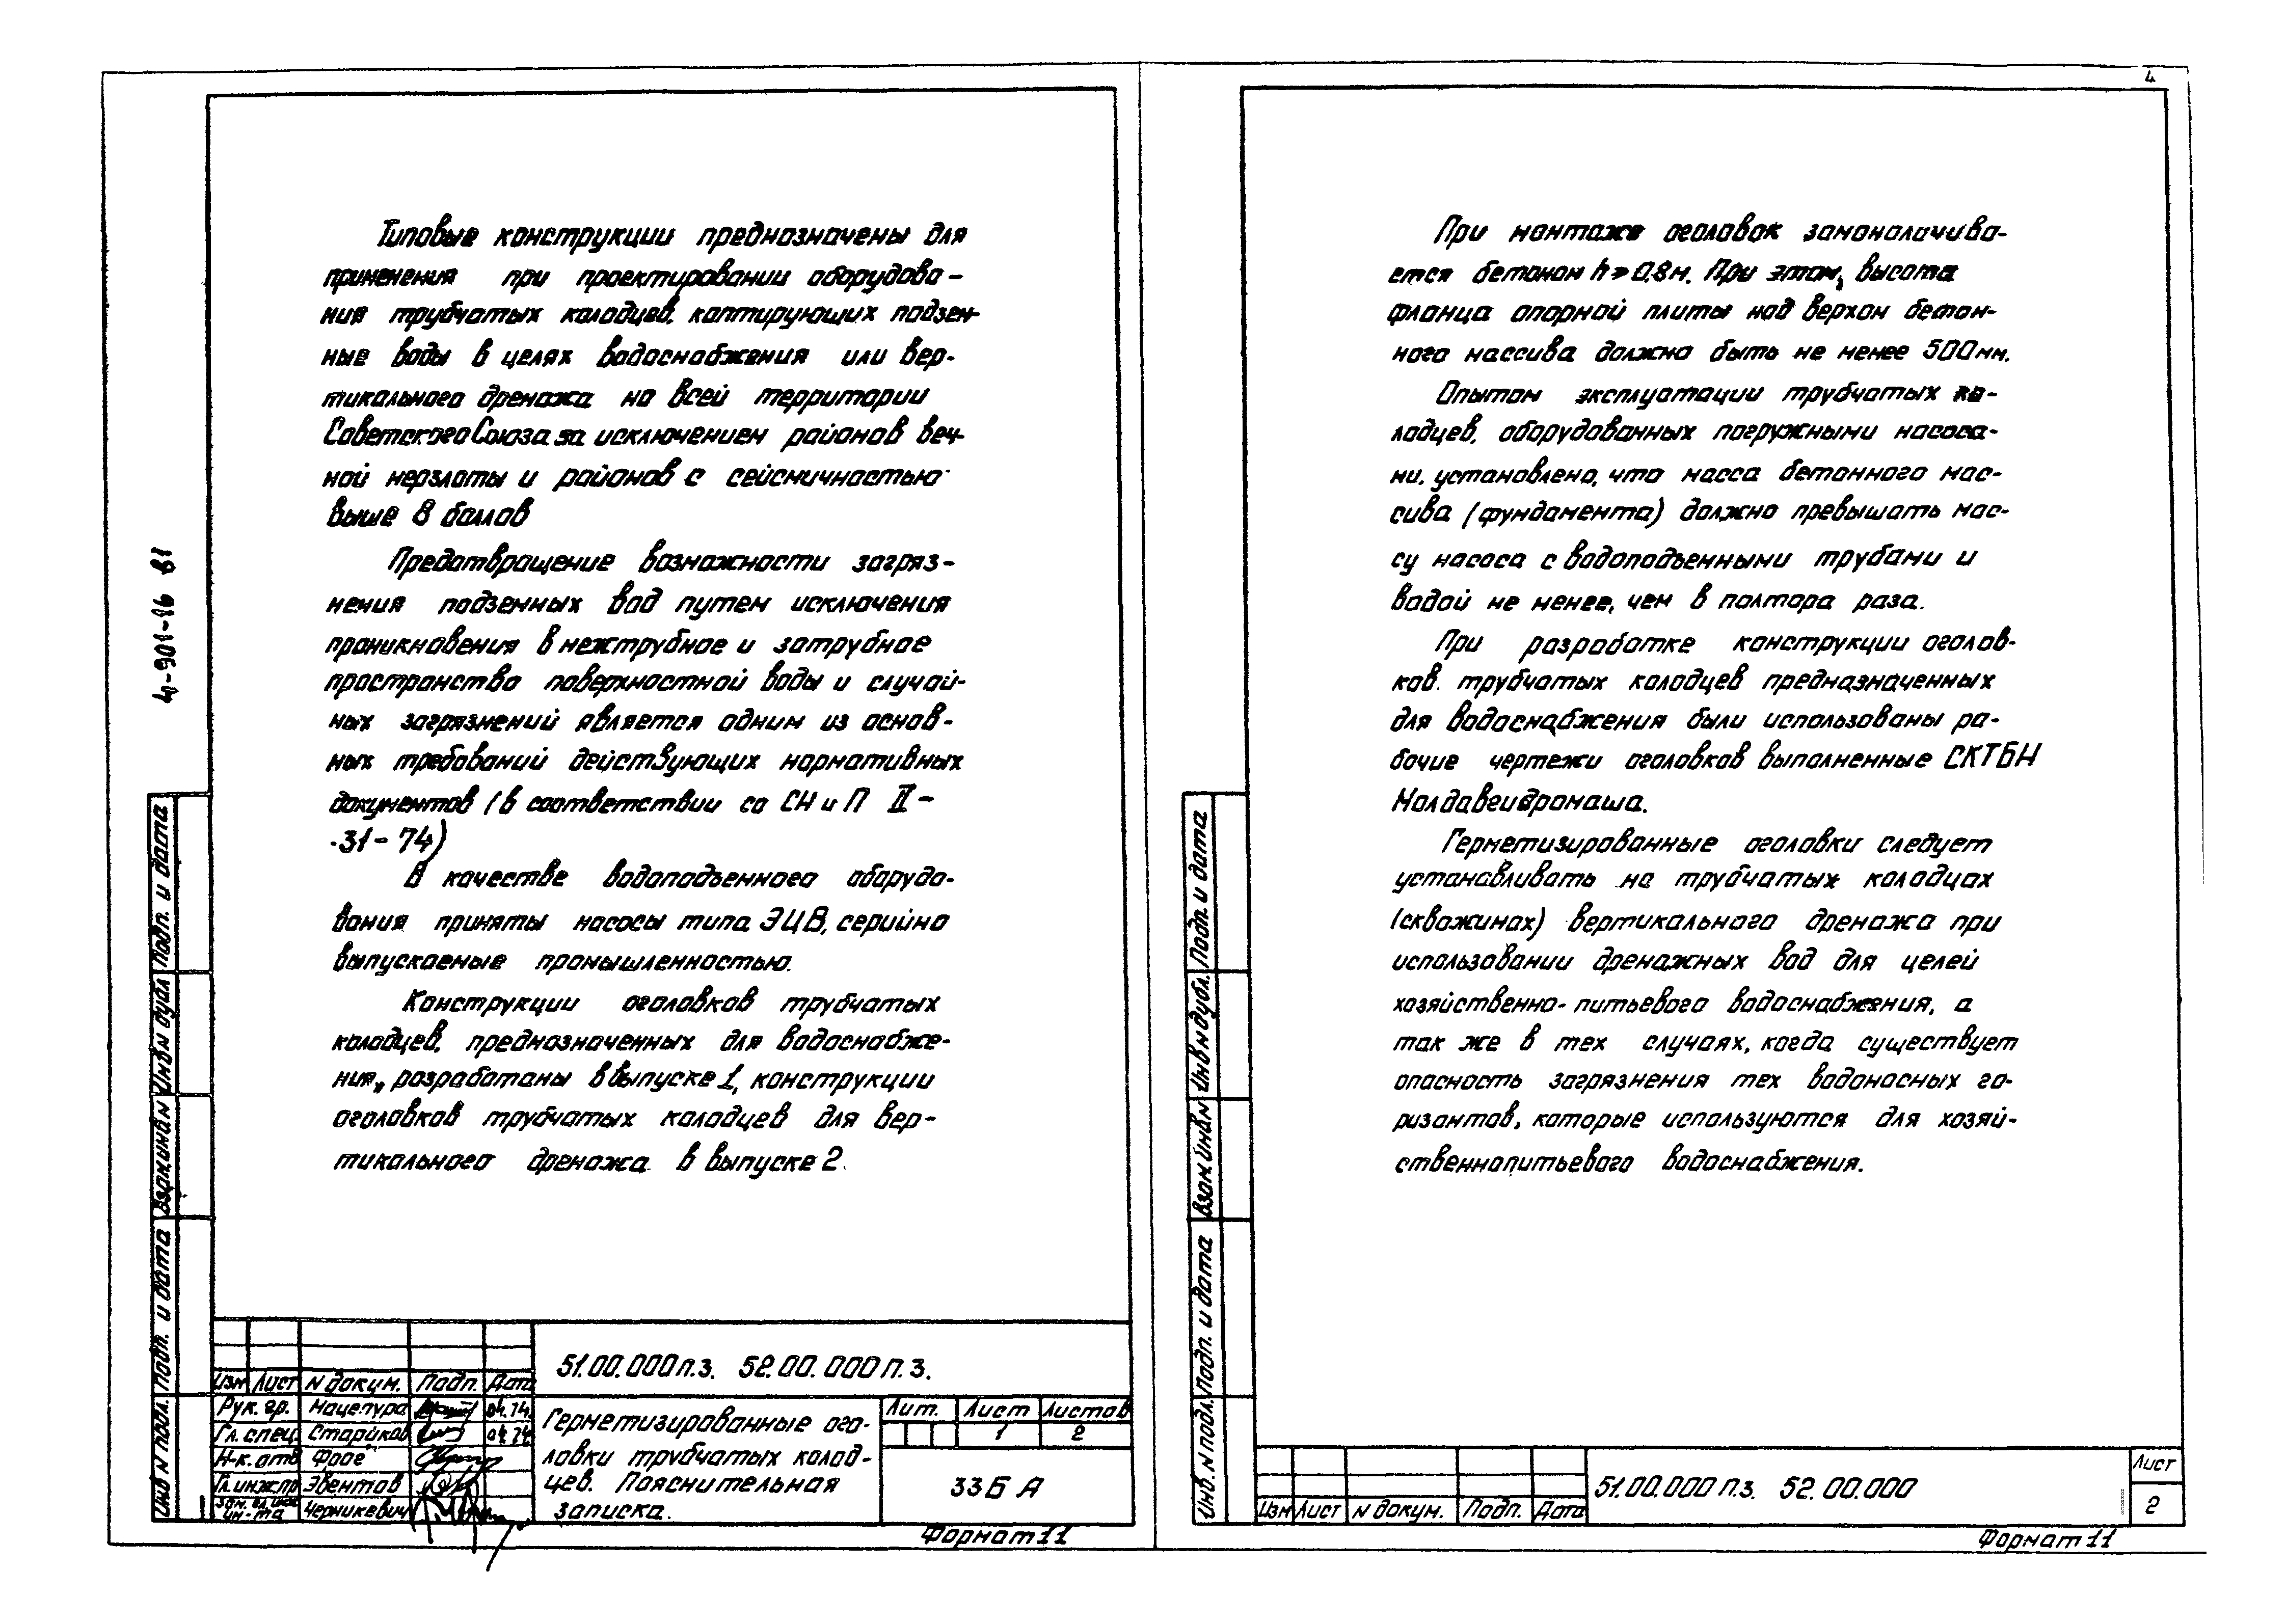 4
4-901-16 В1
Типовые конструкции предназначены для
применения при проектировании оборудова-
ния трубчатых колодцев, каптирующих подзем-
ные воды в целях водоснабжения или вер-
тикального дренажа на всей территории
Советского Союза за исключением районов веч-
ной мерзлоты и районов с сейсмичностью
выше 8 баллов
Предотвращение возможности загряз-
нения подземных вод путем исключения
проникновения в межтрубное и затрубное
пространство поверхностной воды и случай-
ных загрязнений является одним из основ-
ных требований действующих нормативных
документов (в соответствии со СН и П II-
-31-74)
В качестве водоподъемного оборудо-
вания приняты насосы типа ЭЦВ, серийно
выпускаемые промышленностью.
Конструкции оголовков трубчатых
колодцев, предназначенных для водоснабже-
ния, разработаны в выпуске 1, конструкции
оголовков трубчатых колодцев для вер-
тикального дренажа в выпуске 2.
51.00.000 п.з. 52.00.000 П.З.
Изм Лист N докум. Подп. Дата
Рук. гр. Мацепура 04.74.
Гл. спец. Стариков 04.74
Н-к. отд Фрог
Гл. инж. пр Эвентов
Зам. гл. инж. ин-та Черникевич
Герметизированные ого-
ловки трубчатых колод-
цев. Пояснительная
записка.
Лит. Лист Листов
1 2
33Б А
Формат 11
Инв N подл. Подп. и дата Взам инв N Инв N дубл Подп. и дата
При монтаже оголовок замоноличива-
ется бетоном h ≥ 0.8м. При этом, высота
фланца опорной плиты над верхом бетон-
ного массива должна быть не менее 500мм.
Опытом эксплуатации трубчатых ко-
лодцев, оборудованных погружными насоса-
ми, установлено, что масса бетонного мас-
сива (фундамента) должно превышать мас-
су насоса с водоподъемными трубами и
водой не менее, чем в полтора раза.
При разработке конструкции оголов-
ков. трубчатых колодцев предназначенных
для водоснабжения были использованы ра-
бочие чертежи оголовков выполненные СКТБН
Молдавгидромаша.
Герметизированные оголовки следует
устанавливать на трубчатых колодцах
(скважинах) вертикального дренажа при
использовании дренажных вод для целей
хозяйственно-питьевого водоснабжения, а
так же в тех случаях, когда существует
опасность загрязнения тех водоносных го-
ризонтов, которые используются для хозяй-
ственнопитьевого водоснабжения.
Изм Лист N докум. Подп. Дата
51.00.000 п.з. 52.00.000
Лист
2
Формат 11
Инв. N подл. Подп. и дата Взам инв N Инв N дубл. Подп. и дата